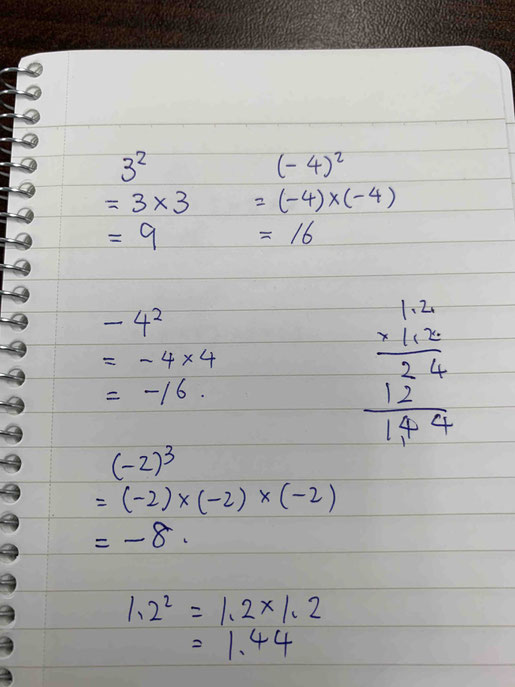 3²
= 3×3
= 9
(-4)²
= (-4)×(-4)
= 16
-4²
= -4×4
= -16.
1.2
×1.2
2 4
12
1.4 4
(-2)³
= (-2)×(-2)×(-2)
= -8.
1.2² = 1.2×1.2
= 1.44